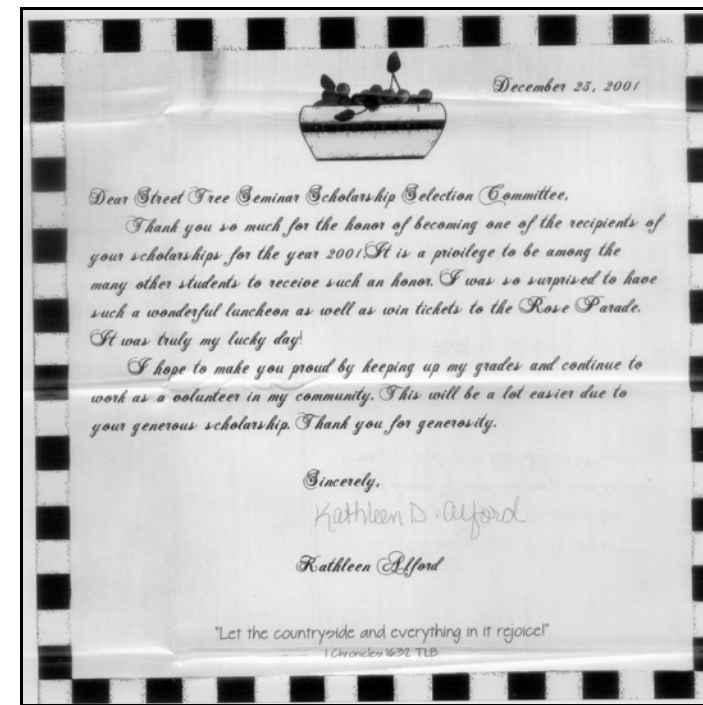 December 23, 2001
Dear Street Tree Seminar Scholarship Selection Committee,
Thank you so much for the honor of becoming one of the recipients of
your scholarships for the year 2001. It is a privilege to be among the
many other students to receive such an honor. I was so surprised to have
such a wonderful luncheon as well as win tickets to the Rose Parade.
It was truly my lucky day!
I hope to make you proud by keeping up my grades and continue to
work as a volunteer in my community. This will be a lot easier due to
your generous scholarship. Thank you for generosity.
Sincerely,
Kathleen D. Alford
Kathleen Alford
"Let the countryside and everything in it rejoice!"
1 Chronicles 16:32 TLB